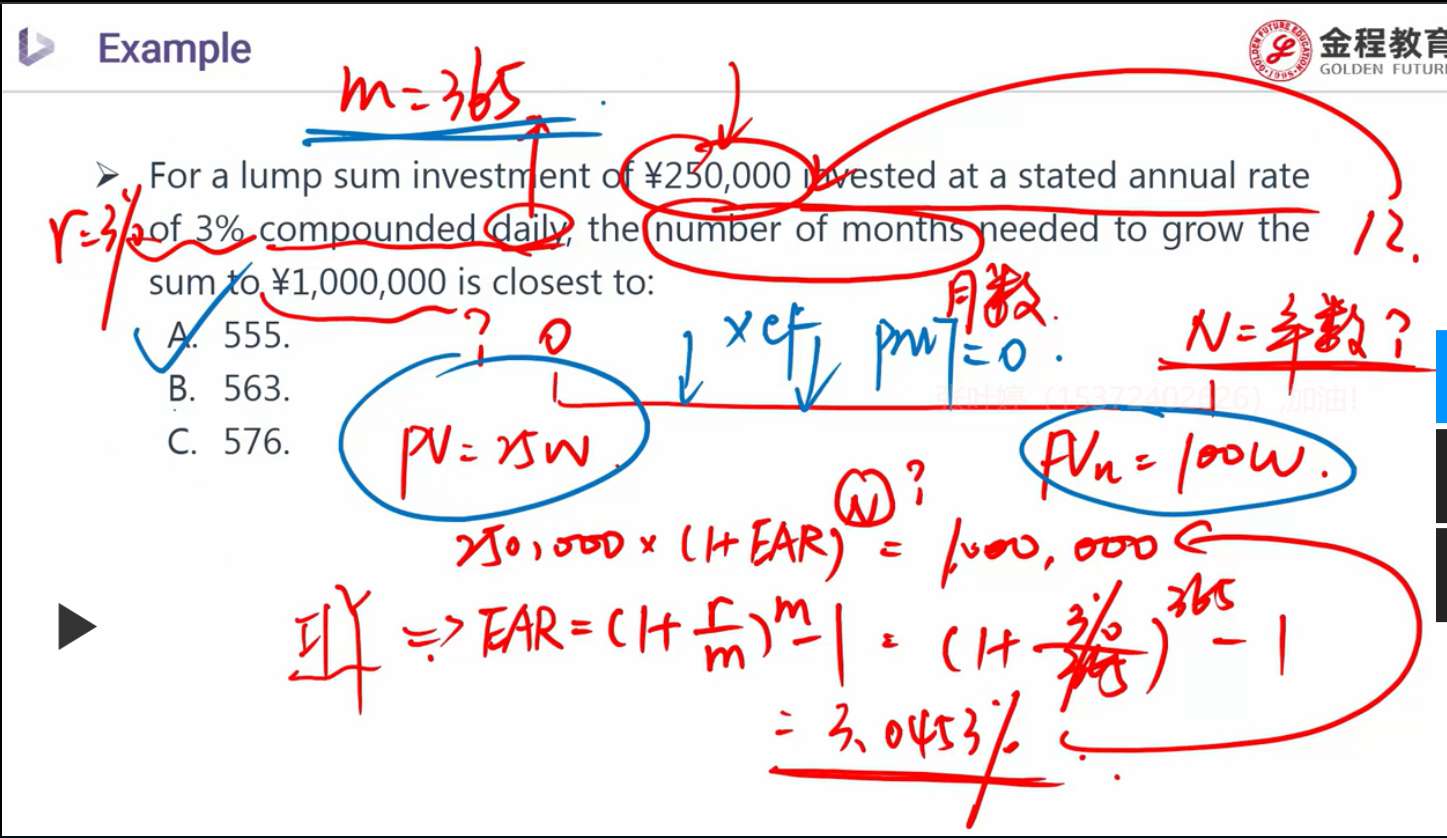 Example
金程教育
GOLDEN FUTUR
m=365
➢ For a lump sum investment of ¥250,000 invested at a stated annual rate
r=3%
of 3% compounded daily, the number of months needed to grow the
12.
sum to ¥1,000,000 is closest to:
月数.
A. 555.
? 0
×cf
PMT=0.
N=年数?
B. 563.
C. 576.
PV=25W.
FVn=100W.
250,000×(1+EAR)^N?=1,000,000
⇒ EAR=(1+r/m)^m-1=(1+3%/365)^365-1
=3.0453%